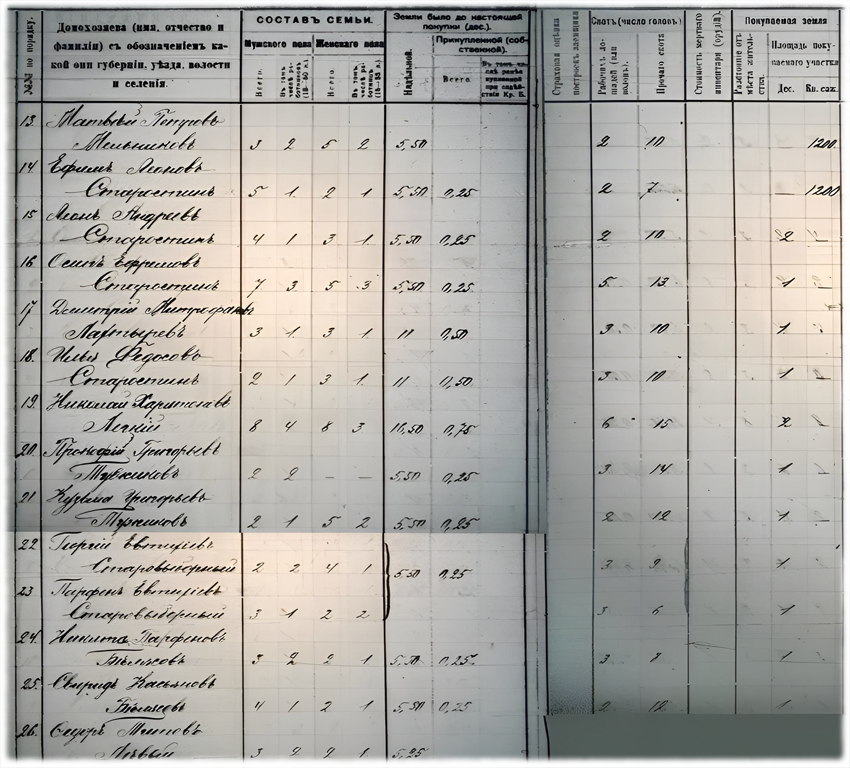 №№ по порядку.
Домохозяева (имя, отчество и фамилія) съ обозначеніемъ какой они губерніи, уѣзда, волости и селенія.
СОСТАВЪ СЕМЬИ.
Мужского пола Женскаго пола
Всего.
Въ томъ числѣ работниковъ (18—60 л.)
Всего.
Въ томъ числѣ работницъ (16—55 л.)
Земли было до настоящей покупки (дес.).
Надѣльной.
Прикупленной (собственной).
Всего.
Въ томъ числѣ ранѣе купленной при содѣйствіи Кр. Б.
Страховая оцѣнка построекъ заемщика
Скотъ (число головъ)
Рабочихъ лошадей (или воловъ).
Прочаго скота
Стоимость мертваго инвентаря (орудій).
Покупаемая земля
Разстояніе отъ мѣста жительства.
Площадь покупаемаго участка
Дес. Кв. саж.
13. Матвѣй Петровъ
Мельниковъ 3 2 5 2 5,50 2 10 1200
14 Ефимъ Леоновъ
Старостинъ 5 1 2 1 5,50 0,25 2 7 1200
15 Леонъ Андреевъ
Старостинъ 4 1 3 1 5,50 0,25 2 10 2
16 Осипъ Ефремовъ
Старостинъ 7 3 5 3 5,50 0,25 5 13 1
17 Дмитрій Митрофановъ
Лахтыревъ 3 1 3 1 11 0,50 3 10 1
18. Илья Ѳедосовъ
Старостинъ 2 1 3 1 11 0,50 3 10 1
19. Николай Харитоновъ
Легкій 8 4 8 3 16,50 0,75 6 15 2
20. Прокофій Григорьевъ
2 2 — — 5,50 0,25 3 14 1
21 Кузьма Григорьевъ
2 1 5 2 5,50 0,25 2 12 1
22 Георгій Евтихіевъ
Старовыборный 2 2 4 1 5,50 0,25 3 9 1
23 Парфенъ Евтихіевъ
Старовыборный 3 1 2 2 3 6 1
24. Никита Парфеновъ
Бѣляевъ 3 2 2 1 5,50 0,25 3 8 1
25. Свиридъ Касьяновъ
Бѣляевъ 4 1 2 1 5,50 0,25 2 12 1
26. Ѳедоръ
3 2 2 1 5,25